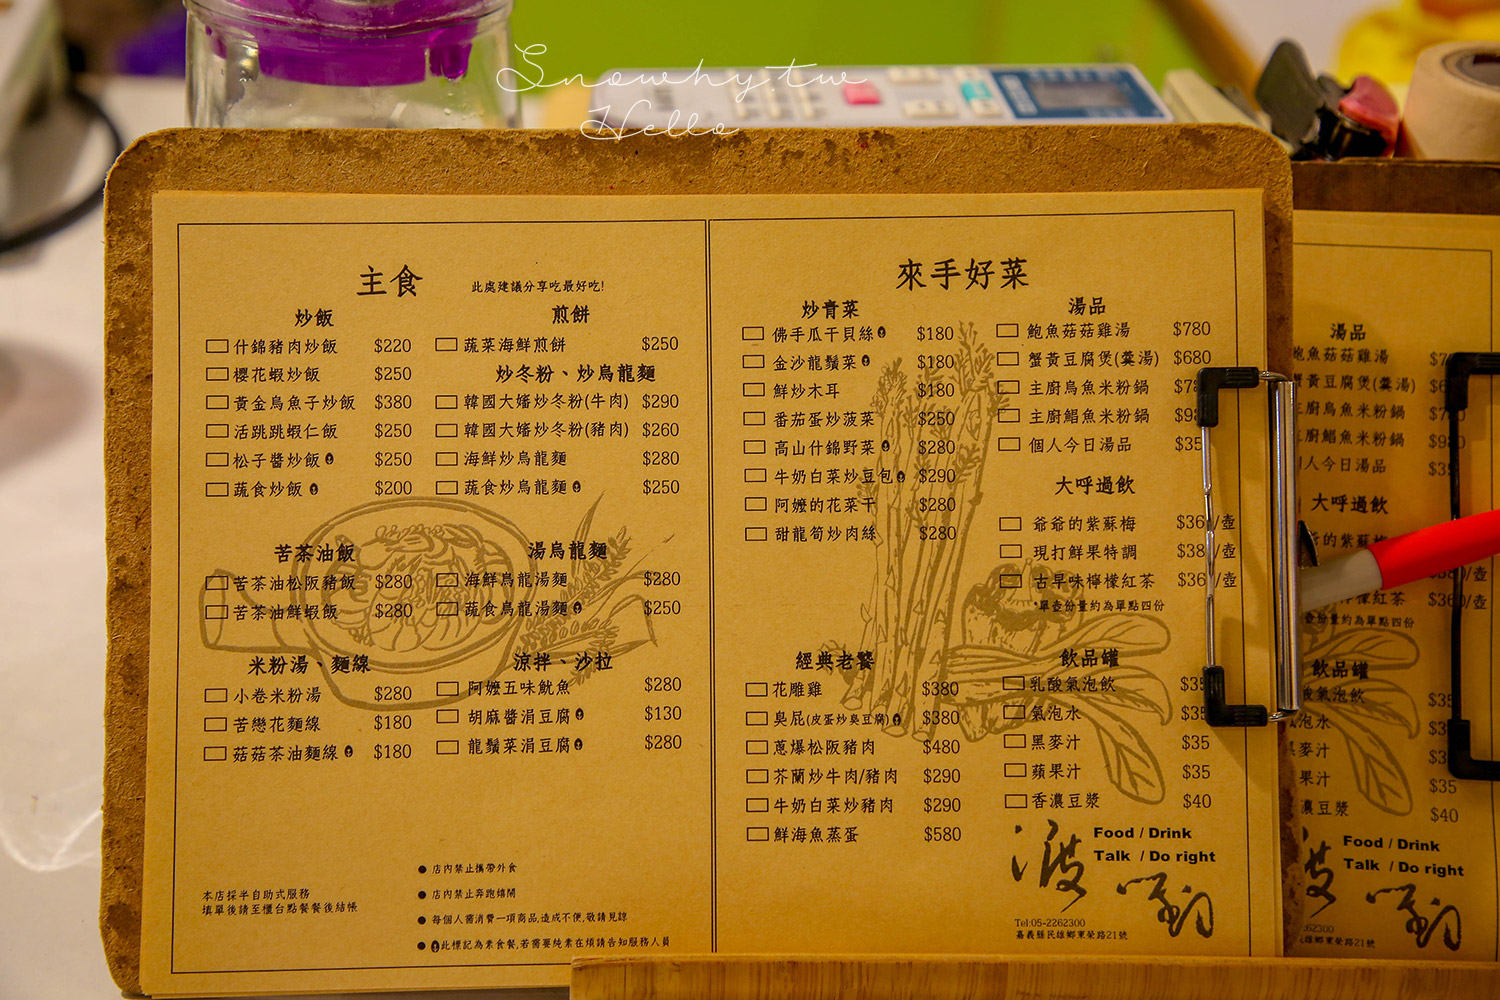 Snowhy.tw
Hello
主食 此處建議分享吃最好吃!
炒飯
什錦豬肉炒飯 $220
櫻花蝦炒飯 $250
黃金烏魚子炒飯 $380
活跳跳蝦仁飯 $250
松子醬炒飯 $250
蔬食炒飯 $200
苦茶油飯
苦茶油松阪豬飯 $280
苦茶油鮮蝦飯 $280
米粉湯、麵線
小卷米粉湯 $280
苦戀花麵線 $180
菇菇茶油麵線 $180
煎餅
蔬菜海鮮煎餅 $250
炒冬粉、炒烏龍麵
韓國大嬸炒冬粉(牛肉) $290
韓國大嬸炒冬粉(豬肉) $260
海鮮炒烏龍麵 $280
蔬食炒烏龍麵 $250
湯烏龍麵
海鮮烏龍湯麵 $280
蔬食烏龍湯麵 $250
涼拌、沙拉
阿嬤五味魷魚 $280
胡麻醬涓豆腐 $130
龍鬚菜涓豆腐 $280
本店採半自助式服務
填單後請至櫃台點餐餐後結帳
● 店內禁止攜帶外食
● 店內禁止奔跑嬉鬧
● 每個人需消費一項商品,造成不便,敬請見諒
● 此標記為素食餐,若需要純素在煩請告知服務人員
來手好菜
炒青菜
佛手瓜干貝絲 $180
金沙龍鬚菜 $180
鮮炒木耳 $180
番茄蛋炒菠菜 $250
高山什錦野菜 $280
牛奶白菜炒豆包 $290
阿嬤的花菜干 $280
甜龍筍炒肉絲 $280
經典老饕
花雕雞 $380
臭屁(皮蛋炒臭豆腐) $380
蔥爆松阪豬肉 $480
芥蘭炒牛肉/豬肉 $290
牛奶白菜炒豬肉 $290
鮮海魚蒸蛋 $580
湯品
鮑魚菇菇雞湯 $780
蟹黃豆腐煲(羹湯) $680
主廚烏魚米粉鍋 $78
主廚鯧魚米粉鍋 $98
個人今日湯品 $35
大呼過飲
爺爺的紫蘇梅 $360/壺
現打鮮果特調 $380/壺
古早味檸檬紅茶 $360/壺
*單壺份量約為單點四份
飲品罐
乳酸氣泡飲 $35
氣泡水 $35
黑麥汁 $35
蘋果汁 $35
香濃豆漿 $40
Food / Drink
Talk / Do right
Tel:05-2262300
嘉義縣民雄鄉東榮路21號
湯品
鮑魚菇菇雞湯 $7
蟹黃豆腐煲(羹湯) $6
主廚烏魚米粉鍋 $7
主廚鯧魚米粉鍋 $98
個人今日湯品 $35
大呼過飲
爺爺的紫蘇梅
檸檬紅茶 $360/壺
壺份量約為單點四份
飲品罐
酸氣泡飲 $35
氣泡水 $3
黑麥汁 $3
果汁 $35
濃豆漿 $40
Food / Drink
Talk / Do right
62300
民雄鄉東榮路21號